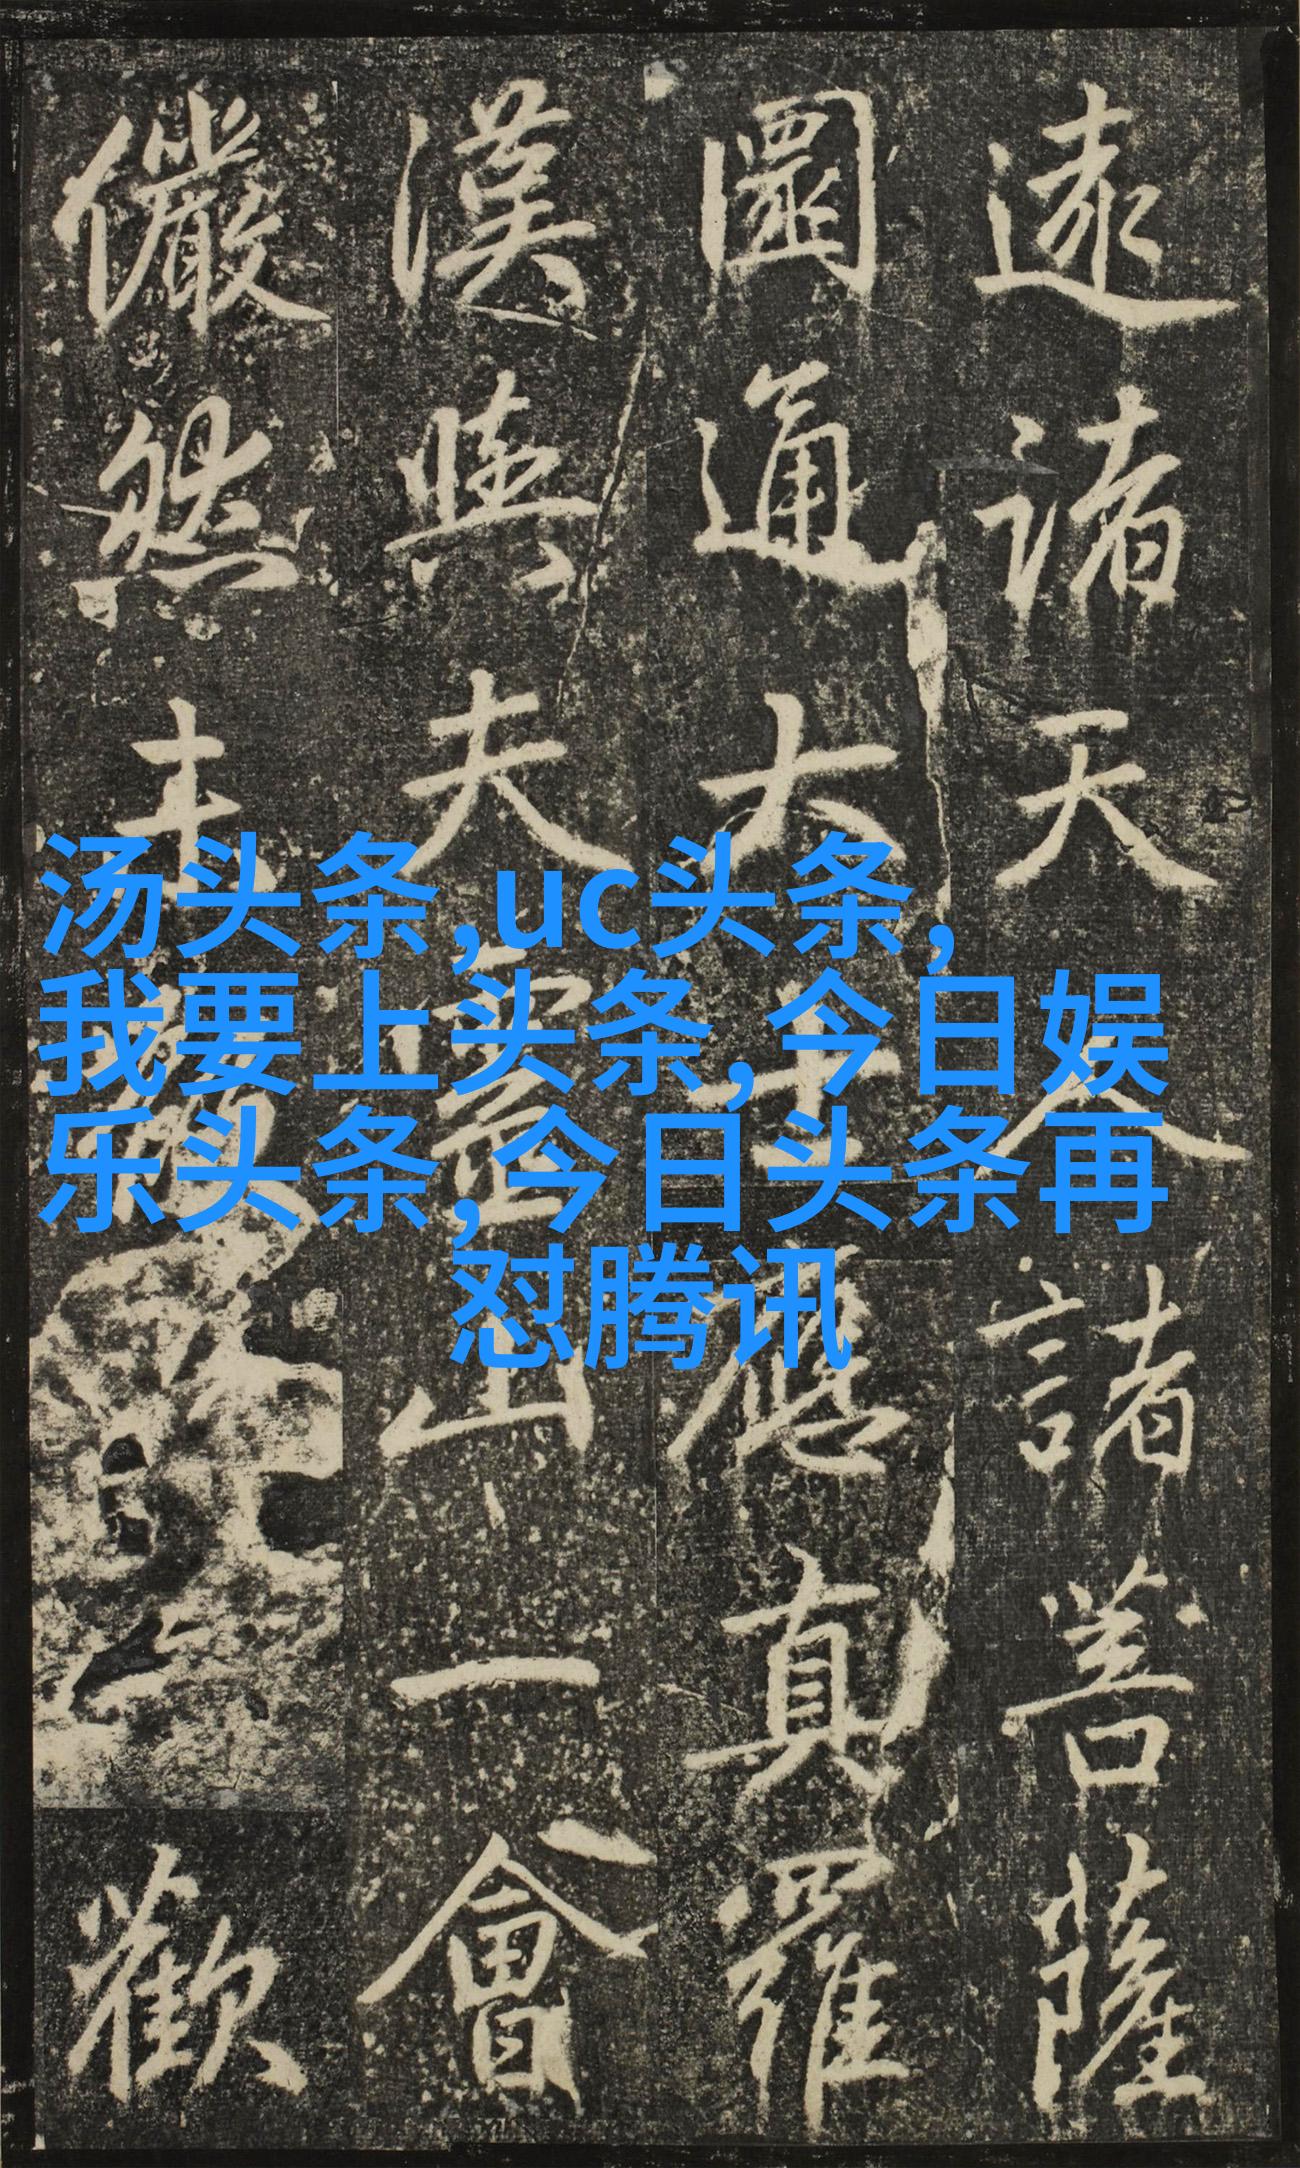 遠諸天人諸菩薩
圓通大士應真羅
漢與夫靈山一會
儼然未歡
汤头条,uc头条,
我要上头条,今日娱
乐头条,今日头条再
怼腾讯